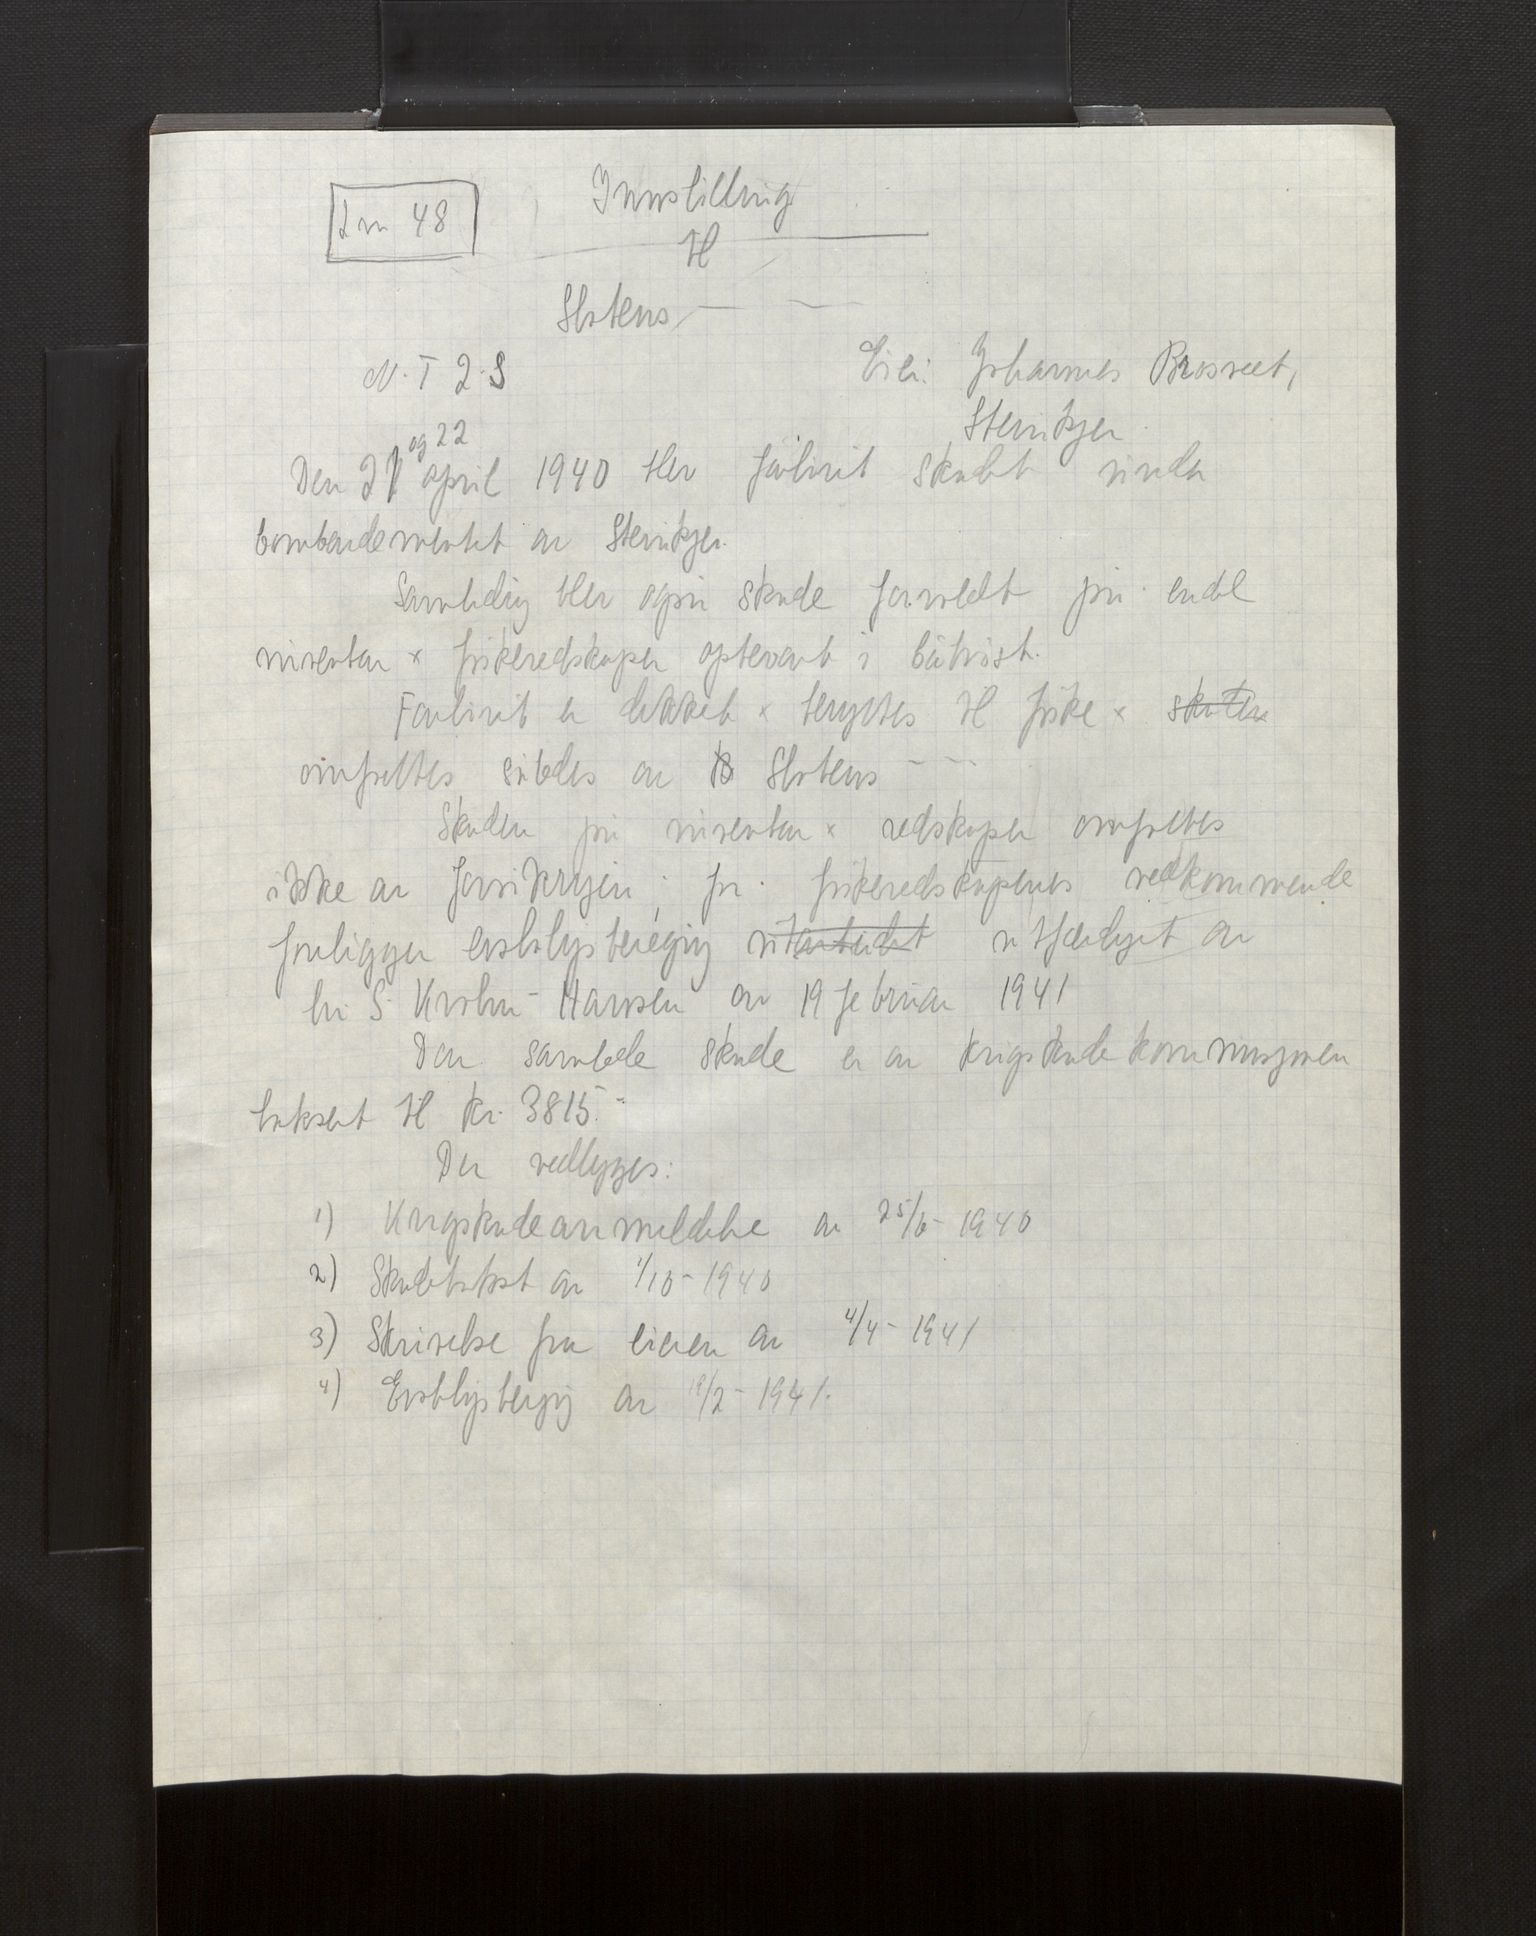 Jnr 48
Innstilling
til
Statens
N.T 2.S
Eier: Johannes
Steinkjer
og 22
Den 21 april 1940 blev farkost skadet under
bombardementet av Steinkjer.
Samtidig blev også skade forvoldt på endel
inventar x fiskeredskaper opbevart i båtnöst.
Farkost er dekket x benyttes til fiske x skaten
omfattes således av Statens
Skaden på inventar x redskaper omfattes
ikke av forsikringen; for fiskeredskapenes vedkommende
foreligger erstatgsberegng utarbeidet utferdiget av
hr S. Krohn-Hansen av 19 februar 1941
Den samlede skade er av krigsskadekommisjonen
taksert til kr. 3815.-
Der vedlegges:
1) Krigsskadeanmeldelse av 25/6-1940
2) Skadetakst av 1/10-1940
3) Skrivelse fra eieren av 4/4-1941
4) Erstatgsbergng av 19/2-1941.